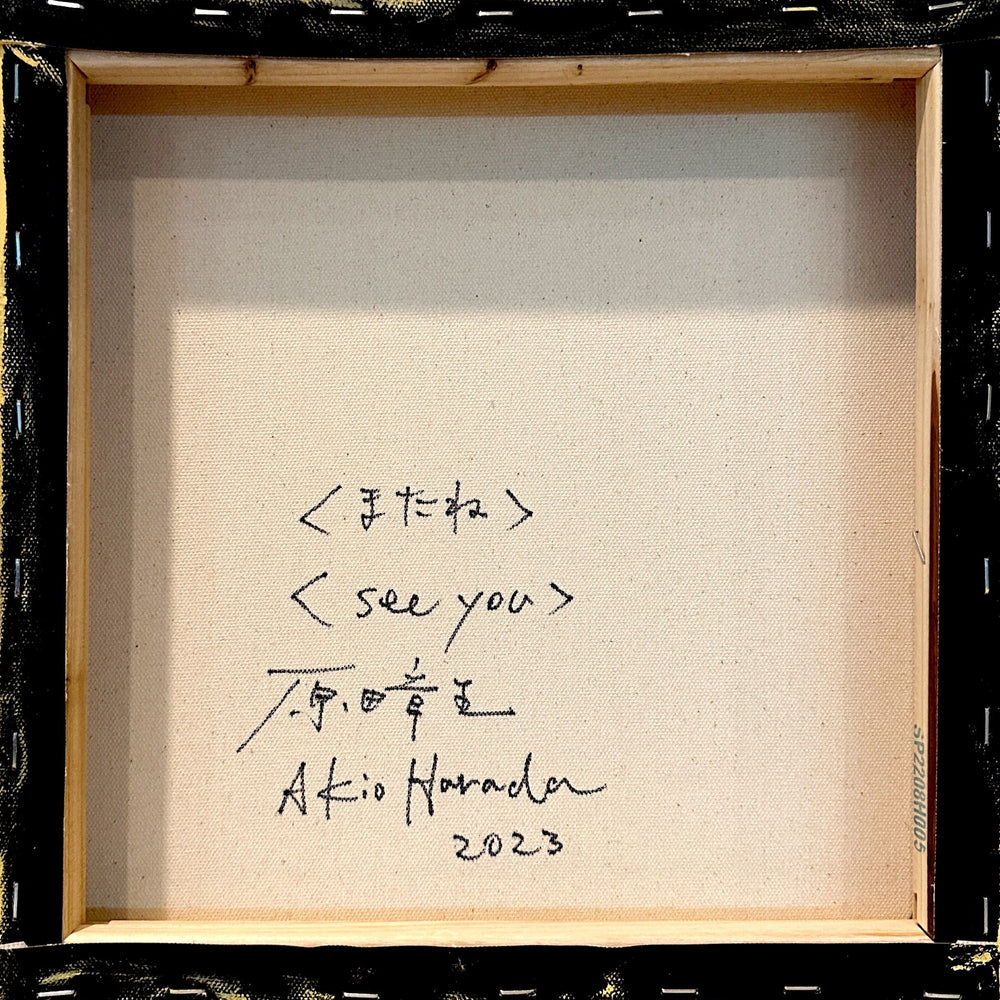 <またね>
<see you>
原田章生
Akio Harada
2023
SP2208H005